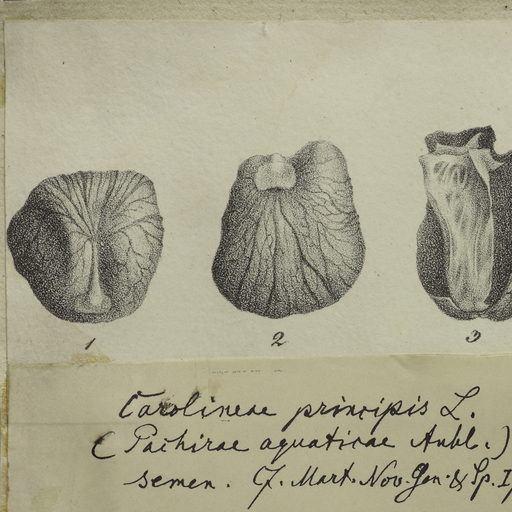 1 2 3
Carolineae principis L.
(Pachirae aquaticae Aubl.)
semen. Cf. Mart. Nov. Gen. & Sp. I,